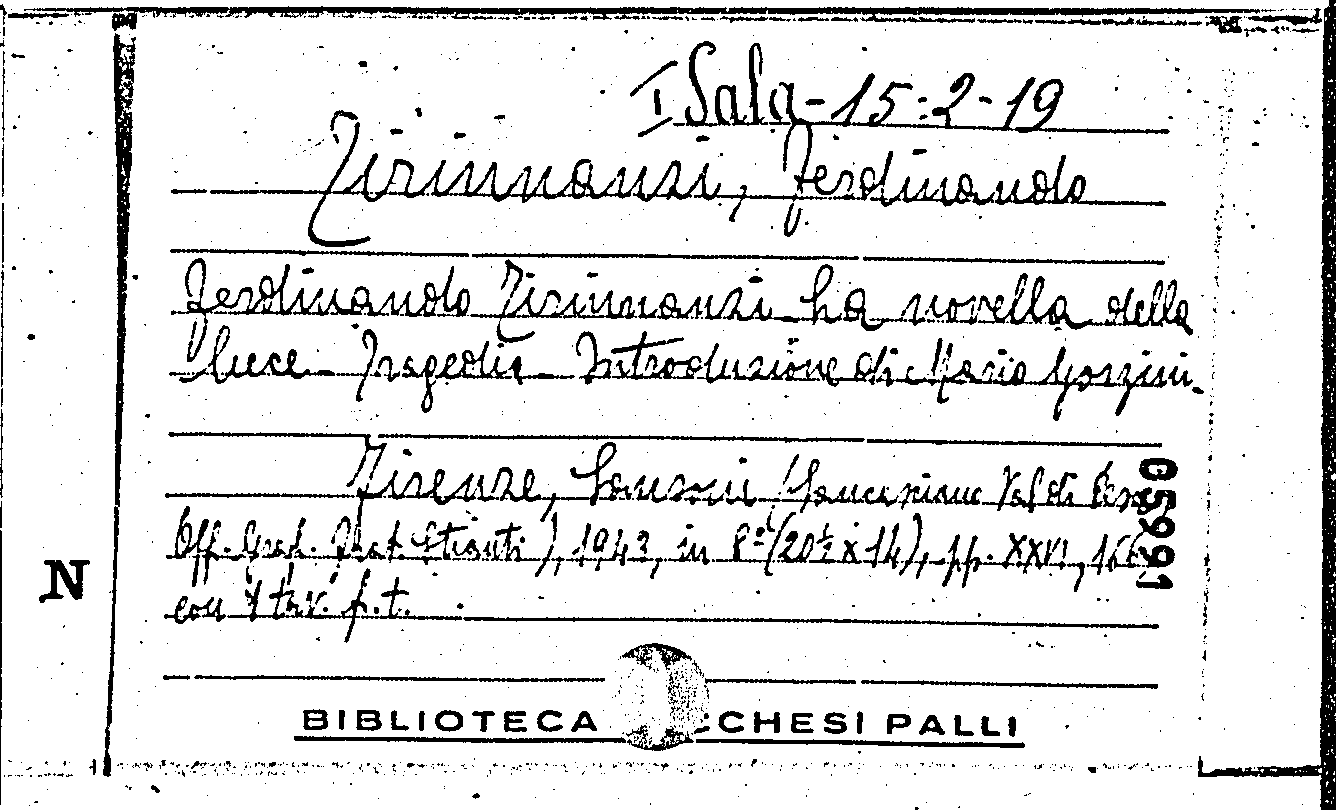 I Sala - 15-2-19
Tirinnanzi, Ferdinando
Ferdinando Tirinnanzi - La novella della
luce - Tragedia - Introduzione di Mario Gozzini.
Firenze, Sansoni (Sancasciano Val di Pesa
Off. Graf. Frat. Stianti), 1943, in 8º (20½ x 14), pp. XXVI, 166
con 1 tav. f. t.
05991
N
BIBLIOTECA CHESI PALLI